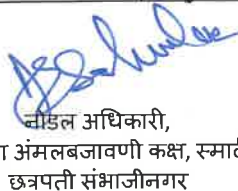 नोडल अधिकारी,
अंमलबजावणी कक्ष, स्मार्ट
छत्रपती संभाजीनगर